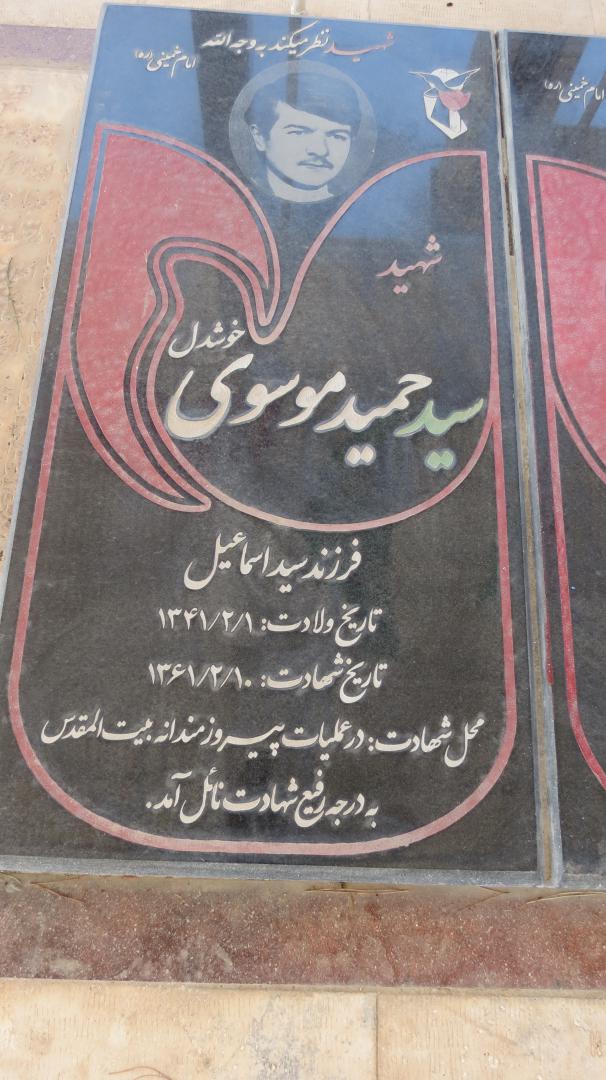 شهید نظر میکند به وجه الله
امام خمینی (ره)
شهید
خوشدل
سید حمید موسوی
فرزند سید اسماعیل
تاریخ ولادت: ۱۳۴۱/۲/۱
تاریخ شهادت: ۱۳۶۱/۲/۱۰
محل شهادت: در عملیات پیروزمندانه بیت المقدس
به درجه رفیع شهادت نائل آمد.
امام خمینی (ره)